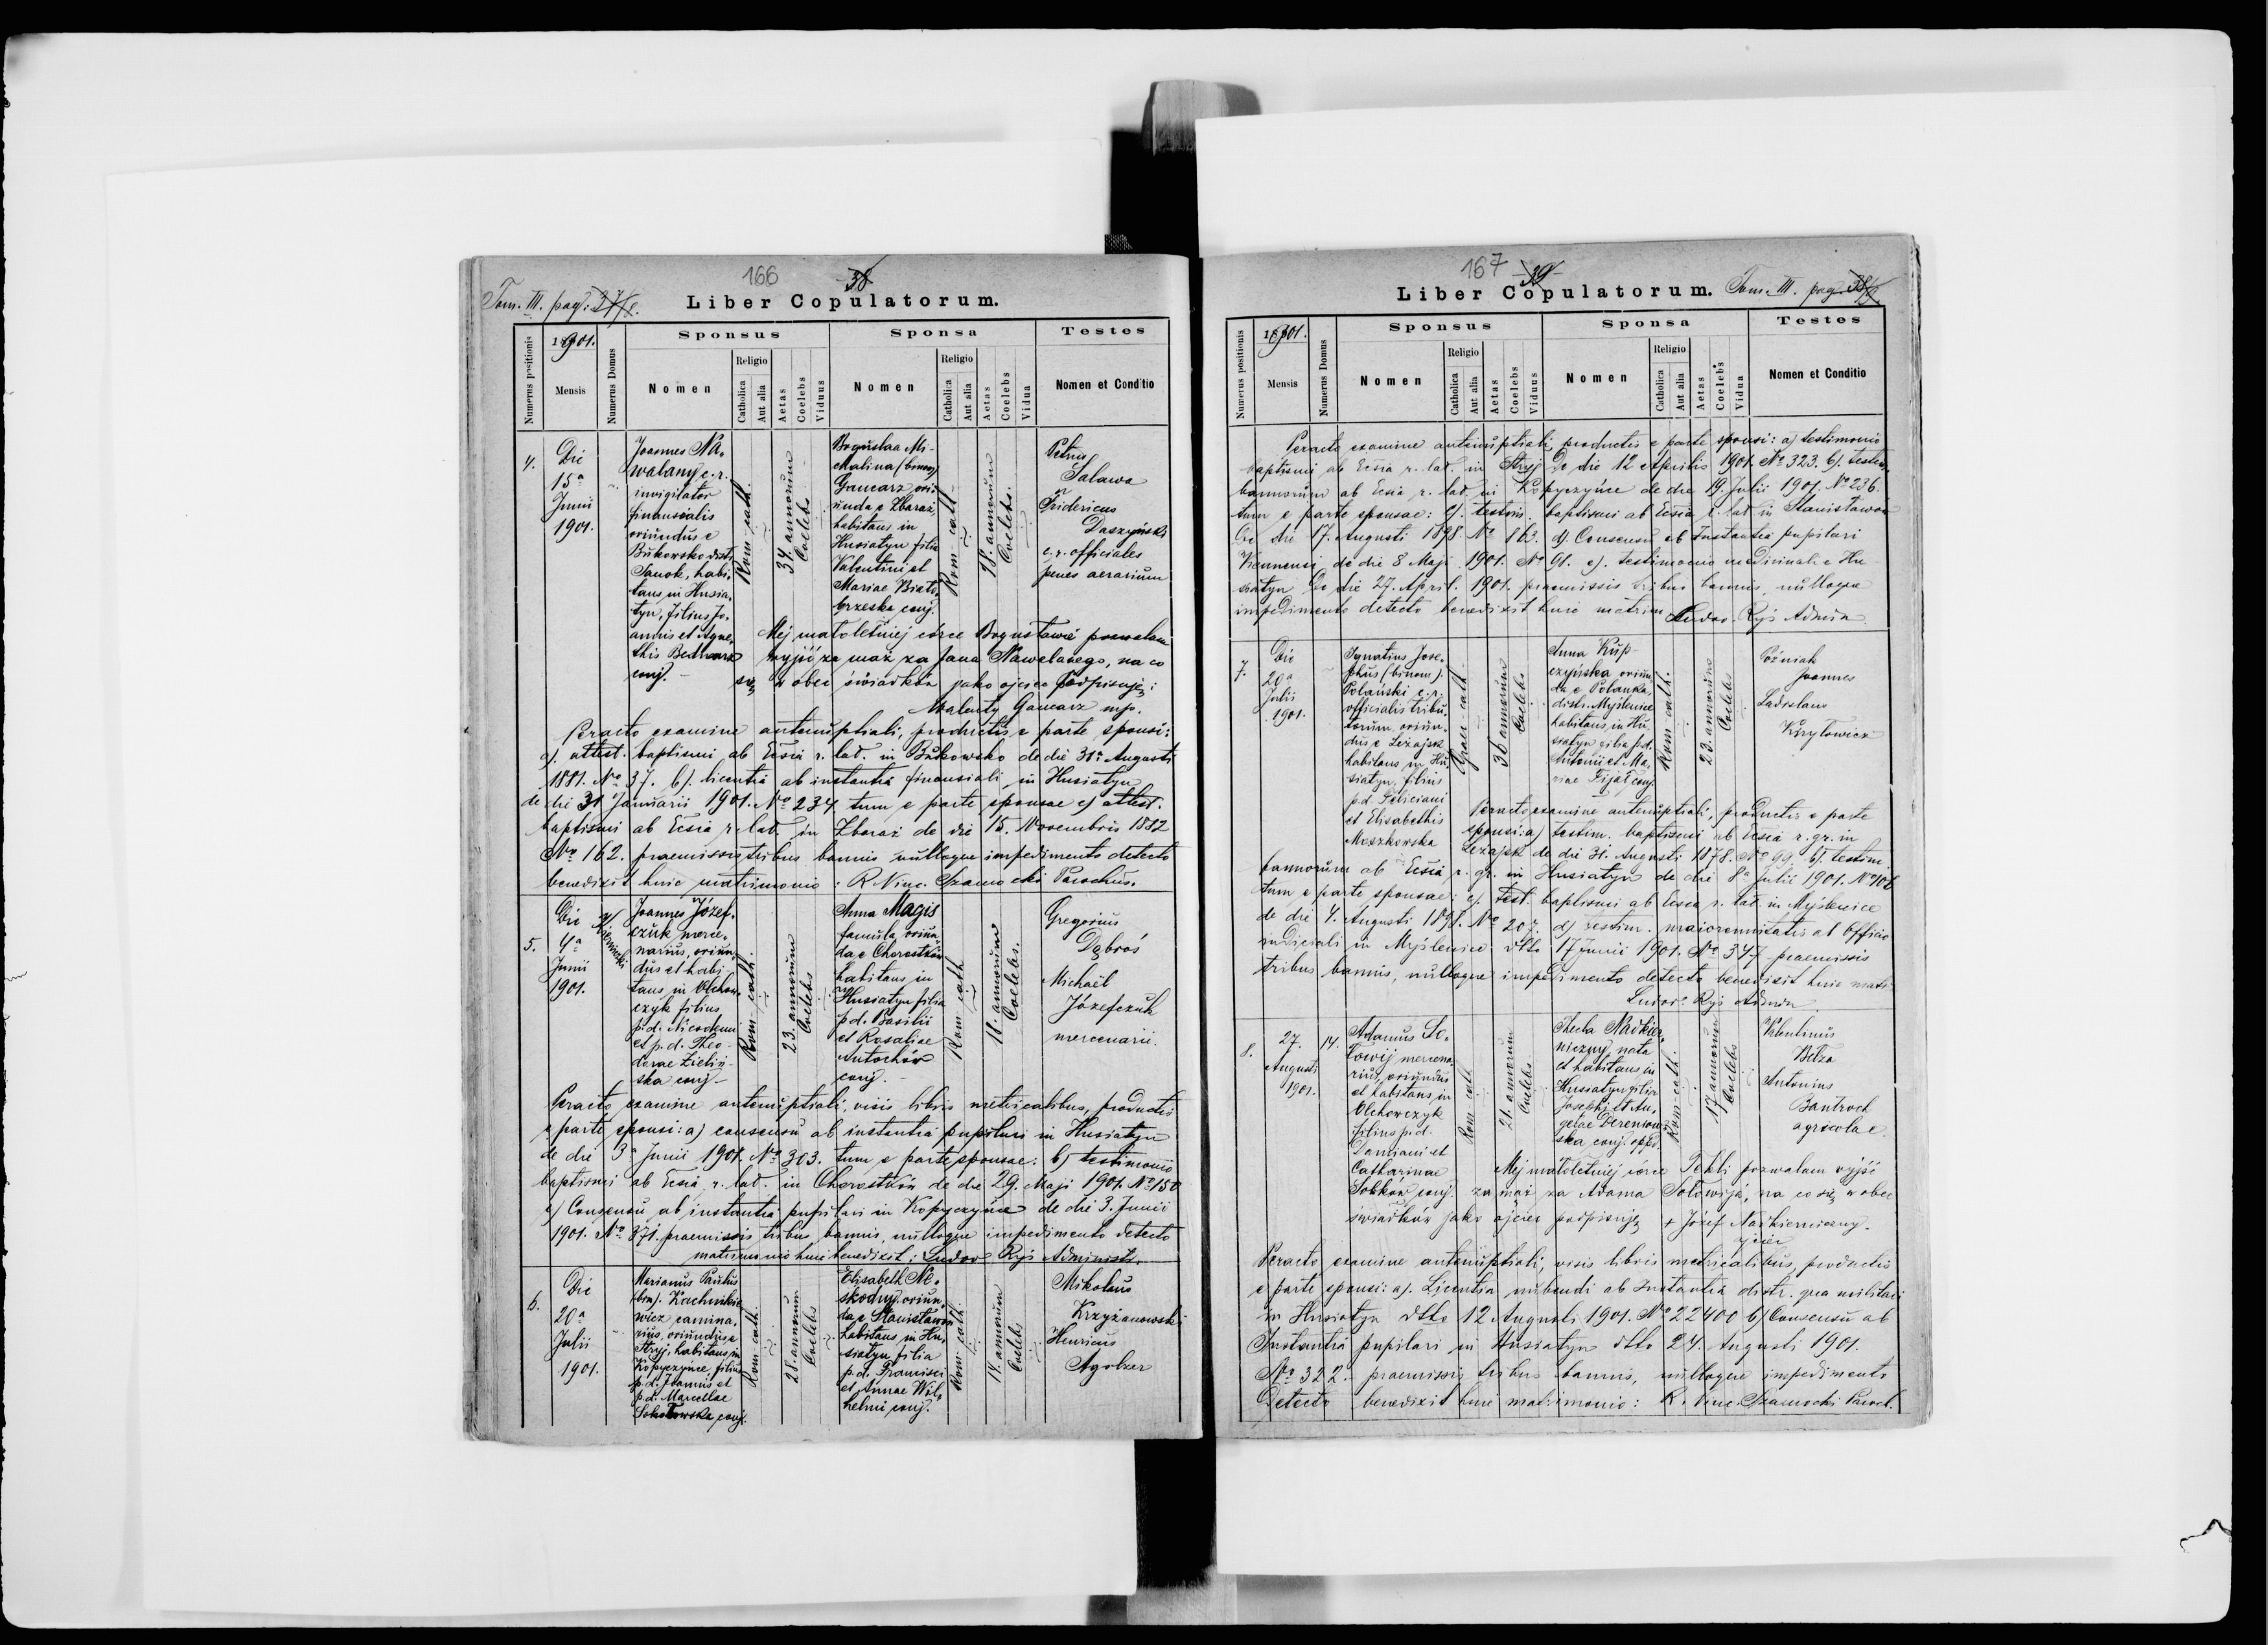 166
38
Tom. III. pag. 37/8.
Liber Copulatorum.
Numerus positionis
1901.
Mensis
Numerus Domus
Sponsus
Nomen
Religio
Catholica
Aut alia
Aetas
Coelebs
Viduus
Sponsa
Nomen
Religio
Catholica
Aut alia
Aetas
Coelebs
Vidua
Testes
Nomen et Conditio
4.
Die
15a
Junii
1901.
Joannes Na-
walany c. r.
invigilator
finansialis
oriundus e
Bukowsko distr.
Sanok, habi-
tans in Husia-
tyn, filius Jo-
annis et Agne-
this Bednarz
conj.
Rom. cath.
34. annorum
Coelebs
Bogusłaa Mi-
chalina (binom)
Gancarz ori-
unda e Zbaraż,
habitans in
Husiatyn filia
Valentini et
Mariae Biało-
brzeska conj.
Rom. cath.
18. annorum
Coelebs.
Petrus
Salawa
Fridericus
Daszyński
c. r. officiales
penes aerarium
Mej małoletniej córce Bogusławie pozwalam
wyjść za mąż za Jana Nawalanego, na co
się w obec świadków jako ojciec podpisuję:
Walenty Gancarz mp.
Peracto examine antenuptiali, productis e parte sponsi:
a). attest. baptismi ab Ecsia r. lat. in Bukowsko de die 31a Augusti
1881. No 37. b). licentia ab instantia finansiali in Husiatyn
de die 31 Januarii 1901. No 234 tum e parte sponsae c) attest.
baptismi ab Ecsia r. lat. in Zbaraż de die 15. Novembris 1882
No 162. praemissis tribus bannis nulloque impedimento detecto
benedixit huic matrimonio: R. Vinc. Szamocki Parochus.
5.
Die
4a
Junii
1901.
Joannes Józef-
czuk merce-
narius, oriun-
dus et habi-
tans in Olchow-
czyk filius
p. d. Nicodemi
et p. d. Theo-
dorae Zieliń-
ska conj.
Rom. cath.
23. annorum
Coelebs
Anna Magis
famula oriun-
da e Chorostków
habitans in
Husiatyn filia
p. d. Basilii
et Rosaliae
Antochów
conj.
Rom. cath
18. annorum
Coelebs.
Gregorius
Dąbroś
Michaël
Józefczuk
mercenarii.
Peracto examine antenuptiali, visis libris metricalibus, productis
e parte sponsi: a) consensu ab instantia pupilari in Husiatyn
de die 3. Junii 1901. No 303. tum e parte sponsae: b) testimonio
baptismi ab Ecsia r. lat. in Chorostków de die 29. Maji 1901. No 150
c) Consensu ab instantia pupilari in Kopyczyńce de die 3. Junii
1901. No 371. praemissis tribus bannis, nulloque impedimento detecto
matrimonio huic benedixit: Ludov. Ryś Administr.
6.
Die
20a
Julii
1901.
Marianus Paulus
(bin). Kachnikie-
wicz camina-
rius, oriundus e
Stryj, habitans in
Kopyczyńce filius
p. d. Joannis et
p. d. Marcellae
Sokołowska conj.
Rom. cath.
28. annorum
Coelebs
Elisabeth Ne-
skodny oriun-
da e Stanisławów
habitans in Hu-
siatyn, filia
p. d. Francisci
et Annae Wil-
helmi conj.
Rom. cath.
18. annorum
Coelebs
Mikolaus
Krzyżanowski
Henricus
Agobzer
167
39
Liber Copulatorum.
Tom. III. pag. 38/9.
Numerus positionis
1901.
Mensis
Numerus Domus
Sponsus
Nomen
Religio
Catholica
Aut alia
Aetas
Coelebs
Viduus
Sponsa
Nomen
Religio
Catholica
Aut alia
Aetas
Coelebs
Vidua
Testes
Nomen et Conditio
Peracto examine antenuptiali, productis e parte sponsi: a) testimonio
baptismi ab Ecsia r. lat. in Stryj de die 12 Aprilis 1901. No 323. b). testim.
bannorum ab Ecsia r. lat. in Kopyczyńce de die 19. Julii 1901. No 236.
tum e parte sponsae: c). testim. baptismi ab Ecsia r. lat. in Stanisławów
de die 17. Augusti 1898. No 863. d) Consensu ab Instantia pupilari
de die 8 Maji 1901. No 91. e). testimonio medicinali e Hu-
siatyn de die 27. April. 1901. praemissis tribus bannis, nulloque
impedimento detecto benedixit huic matrim. Ludov. Ryś Admin.
7.
Die
20a
Julii
1901.
Ignatius Jose-
phus (binom).
Polański c. r.
officialis tribu-
torum, oriun-
dus e Leżajsk
habitans in Hu-
siatyn, filius
p. d. Feliciani
et Elisabethis
Moszkowska
Graec. cath.
36 annorum
Coelebs
Anna Kup-
czyńska oriun-
da e Polanka,
distr. Myślenice
habitans in Hu-
siatyn filia p. d.
Antonii et Ma-
riae Fijał conj.
Rom. cath.
23. annorum
Coelebs
Poźniak
Joannes
Ladislaus
Kiryłowicz
Peracto examine antenuptiali, productis e parte
sponsi: a) testim. baptismi ab Ecsia r. gr. in
Leżajsk de die 31. Augusti 1878. No 99. b). testim.
bannorum ab Ecsia r. gr. in Husiatyn de die 8a Julii 1901. No 106
tum e parte sponsae: c). test. baptismi ab Ecsia r. lat. in Myślenice
de die 4. Augusti 1898. No 207. d) testim. maiorennitatis ab Officio
judiciali in Myślenice dtto 17 Junii 1901. No 347 praemissis
tribus bannis, nulloque impedimento detecto benedixit huic matr.
Ludov. Ryś Admin
8.
27.
Augusti
1901.
14.
Adamus So-
łowij mercena-
rius, oriundus
et habitans in
Olchowczyk
filius p. d.
Damiani et
Catharinae
Sobków conj.
Rom. cath.
21. annorum
Coelebs
Thecla Nadkier-
niczny nata
et habitans in
Husiatyn filia
Josephi et An-
gelae Dereniow-
ska conj. oppid.
Rom. cath.
17 annorum
Coelebs
Valentinus
Bełza
Antonius
Bantroch
agricolae
Mej małoletniej córce Tekli pozwalam wyjść
za mąż za Adama Sołowija, na co się w obec
świadków jako ojciec podpisuję + Józef Nadkierniczny.
ojciec
Peracto examine antenuptiali, visis libris metricalibus, productis
e parte sponsi: a). Licentia nubendi ab Instantia distr. qua militari
in Husiatyn dtto 12 Augusti 1901. No 22400 b) Consensu ab
Instantia pupilari in Husiatyn dtto 24. Augusti 1901.
No 322. praemissis tribus bannis, nulloque impedimento
detecto benedixit huic matrimonio: R. Vinc. Szamocki Paroch.